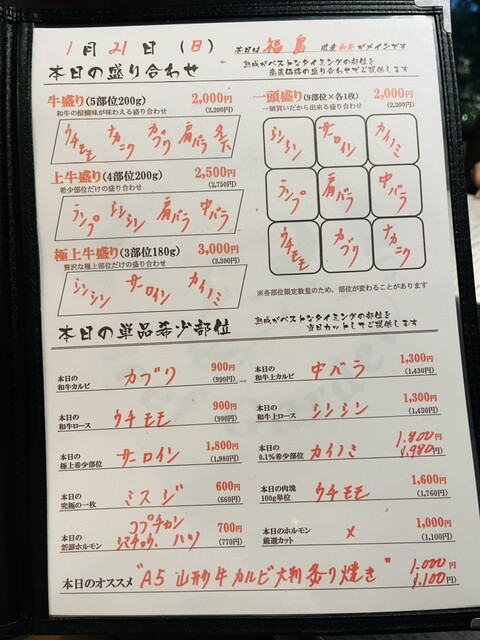 1月21日(日)
本日は 福島 県産和牛がメインです
本日の盛り合わせ
熟成がベストなタイミングの部位を
お直価格の盛り合わせでご提供します
牛盛り(5部位200g) 2,000円
和牛の醍醐味が味わえる盛り合わせ (2,200円)
ウチモモ カメニク カブリ 肩バラ
上牛盛り(4部位200g) 2,500円
希少部位だけの盛り合わせ (2,750円)
ランプ シンシン 肩バラ 中バラ
極上牛盛り(3部位180g) 3,000円
贅沢な極上部位だけの盛り合わせ (3,300円)
シンシン サーロイン カイノミ
一頭盛り(9部位×各1枚) 2,000円
一頭買いだから出来る盛り合わせ (2,200円)
シンシン サーロイン カイノミ
ランプ 肩バラ 中バラ
ウチモモ カブリ カメニク
※各部位限定数量のため、部位が変わることがあります
本日の単品希少部位
熟成がベストなタイミングの部位を
当日カットしてご提供します
本日の
和牛カルビ カブリ 900円
(990円)
本日の
和牛上カルビ 中バラ 1,300円
(1,430円)
本日の
和牛ロース ウチモモ 900円
(990円)
本日の
和牛上ロース シンシン 1,300円
(1,430円)
本日の
極上希少部位 サーロイン 1,800円
(1,980円)
本日の
0.1%希少部位 カイノミ 1,800円
1,980円
本日の
究極の一枚 ミスジ 600円
(660円)
本日の肉塊
100g単位 ウチモモ 1,600円
(1,760円)
本日の
新鮮ホルモン コプチャン
シマチョウ、ハツ 700円
(770円)
本日のホルモン
厳選カット × 1,000円
(1,100円)
本日のオススメ "A5 山形牛カルビ大判炙り焼き" 1,000円
1,100円